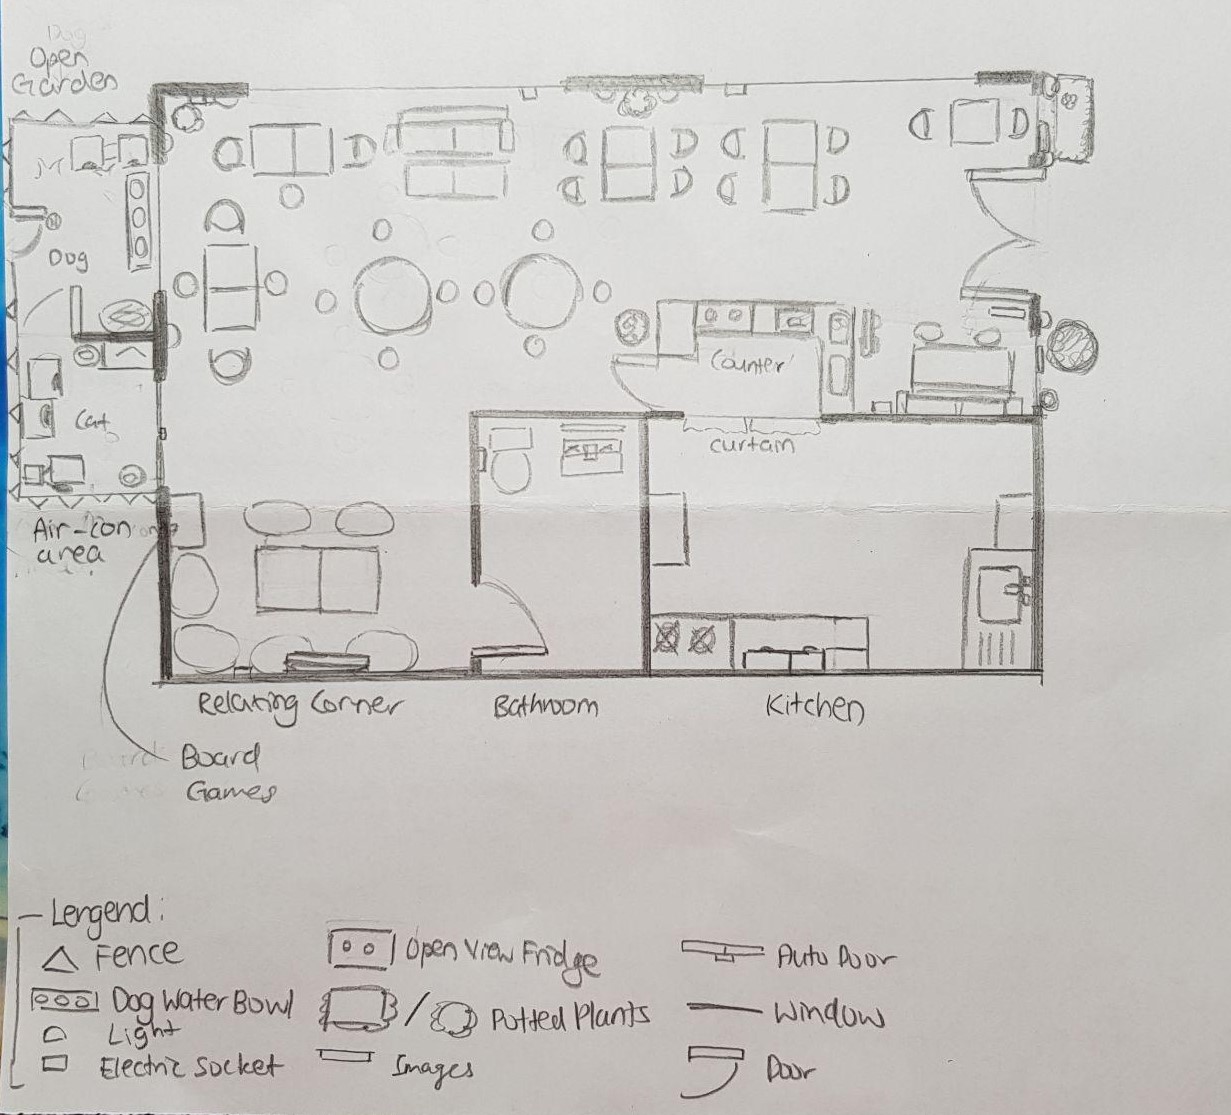 Dog
Open
Garden
Dog
Cat
Air-con
area
Counter
curtain
Relaxing Corner
Bathroom
Kitchen
Board
Games
Lengend:
Fence
Dog Water Bowl
Light
Electric Socket
Open View Fridge
/ Potted Plants
Images
Auto Door
Window
Door